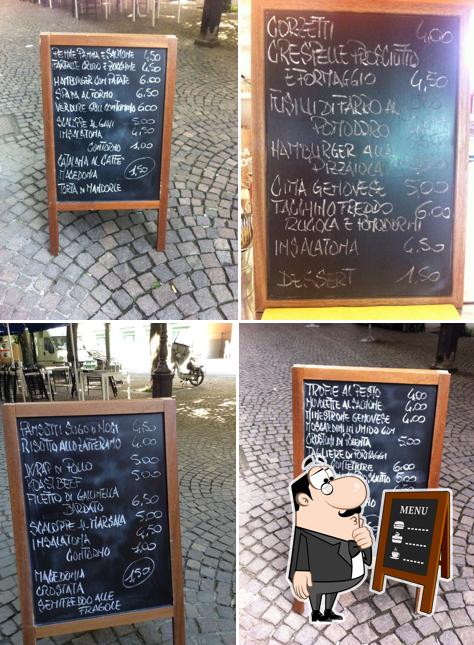 PENNE PANNA E SALMONE 4,50
TARTALLE GRIGIO E ZUCCHINE 4,50
HAMBURGER CON PATATE 6,00
SPADA AL FORNO 6,50
VERDURE GRILL CONTORNO 6,00
SCALOPPE AL GAVI 5,00
INSALATONA 4,50
CONTORNO 1,00
CATALANA AL CAFFE'
MACEDONIA 1,50
TORTA DI MANDORLE
CORZETTI 4,00
CRESPELLE PROSCIUTTO
E FORMAGGIO 4,50
FUSILLI DI FARRO AL
POMODORO
HAMBURGER ALLA
PIZZAIOLA
CIMA GENOVESE 5,00
TACCHINO FREDDO 6,00
RUCOLA E POMODORINI
INSALATONA 4,50
DESSERT 1,50
PANSOTTI SUGO DI NOCI 4,50
RISOTTO ALLO ZAFFERANO 4,00
DORAP DI POLLO 5,00
ROAST BEEF 5,00
FILETTO DI GALLINELLA
BARDATO 6,50
SCALOPPE AL MARSALA 5,00
INSALATONA 4,50
CONTORNO 1,00
MACEDONIA 1,50
CROSTATA
SEMIFREDDO ALLE
FRAGOLE
TROFIE AL PESTO 4,00
AL SALMONE 4,00
MINESTRONE GENOVESE 4,00
MOSCARDINI IN UMIDO CON
CROSTINI DI POLENTA 5,00
TAGLIERE DI FORMAGGI
6,00
5,00
MENU